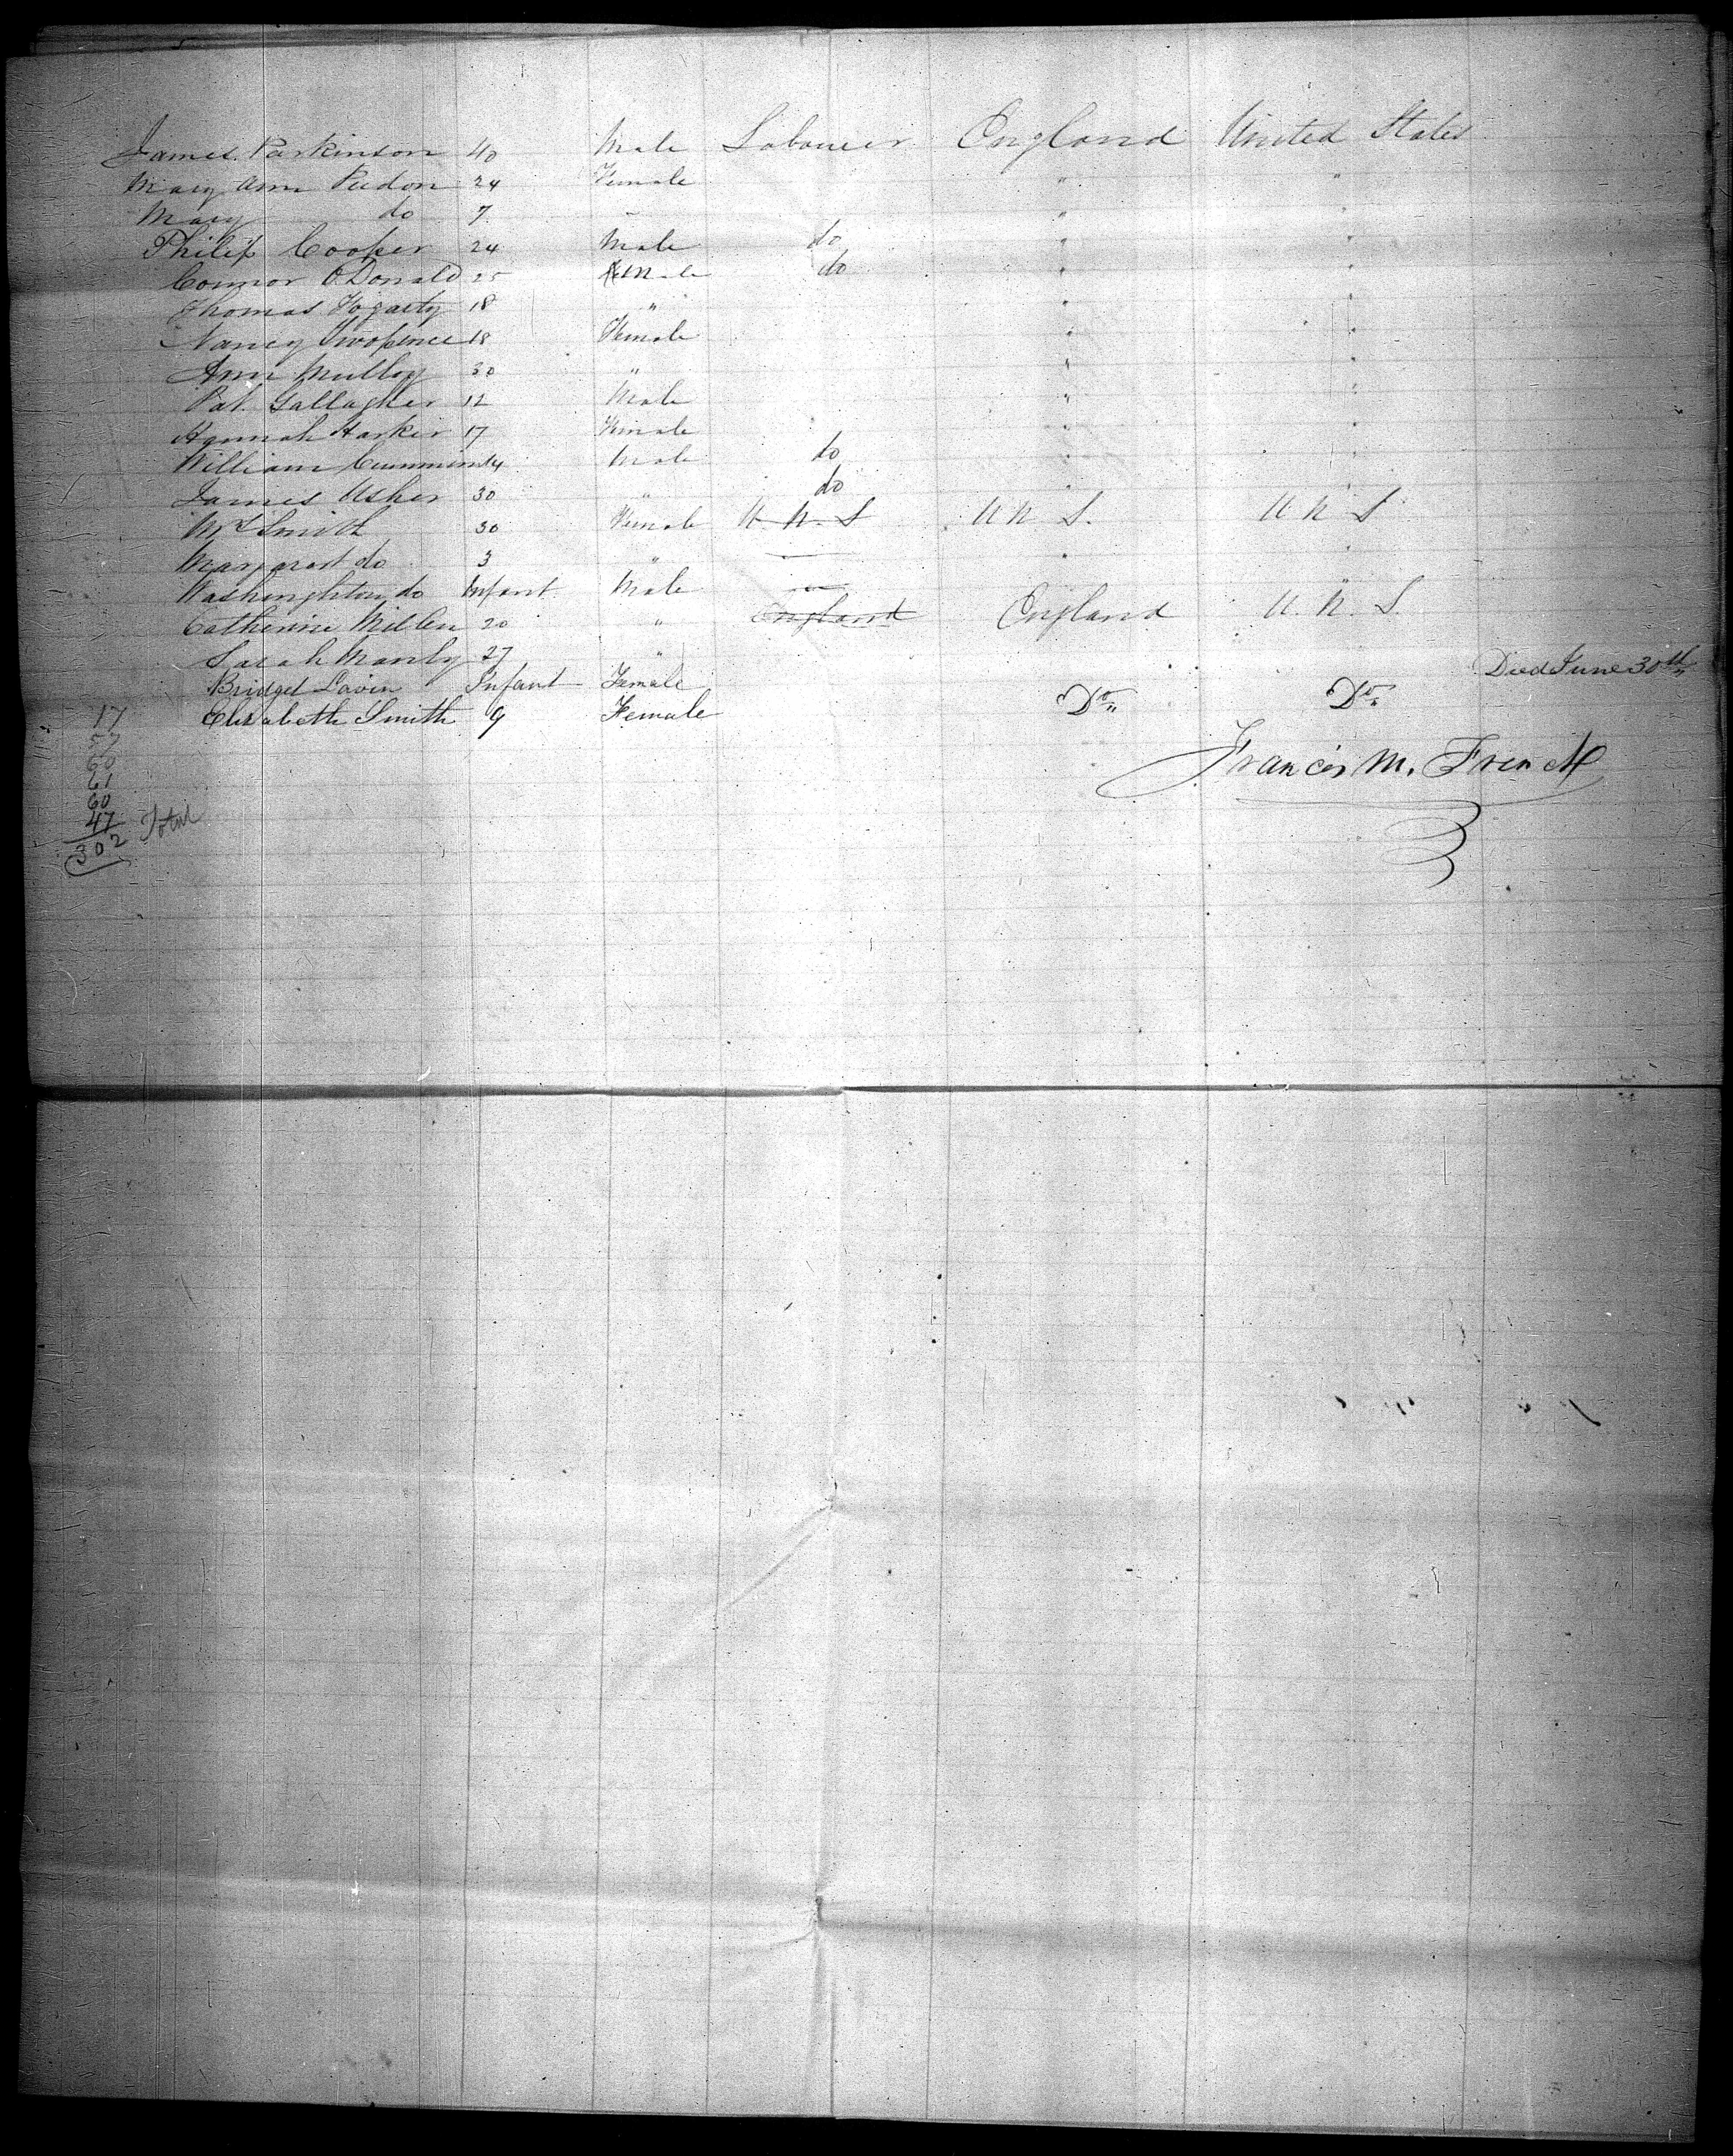 James Parkinson 40 Male Labourer England United States
Mary Ann 24 Female " "
Mary do 7 " "
Philip Cooper 24 Male do " "
Connor O Donald 25 Male do " "
Thomas Fogarty 18 " " "
Nancy Twopence 18 Female " "
Ann Mulloy 30 " " "
Pat. Gallagher 12 Male " "
Hannah Harker 17 Female " "
William Cummins 14 Male do " "
James Usher 30 " do " "
Mrs Smith 30 Female U. N. S U N S. U N S
Margaret do 3 " " "
Washington do Infant Male "
Catherine Miller 20 " England England U. N. S.
Sarah Manly 27 "
Bridget Lavin Infant Female Died June 30th
Elizabeth Smith 9 Female Do Do
17
57
60
61
60
47
302 Total
Francis M. French